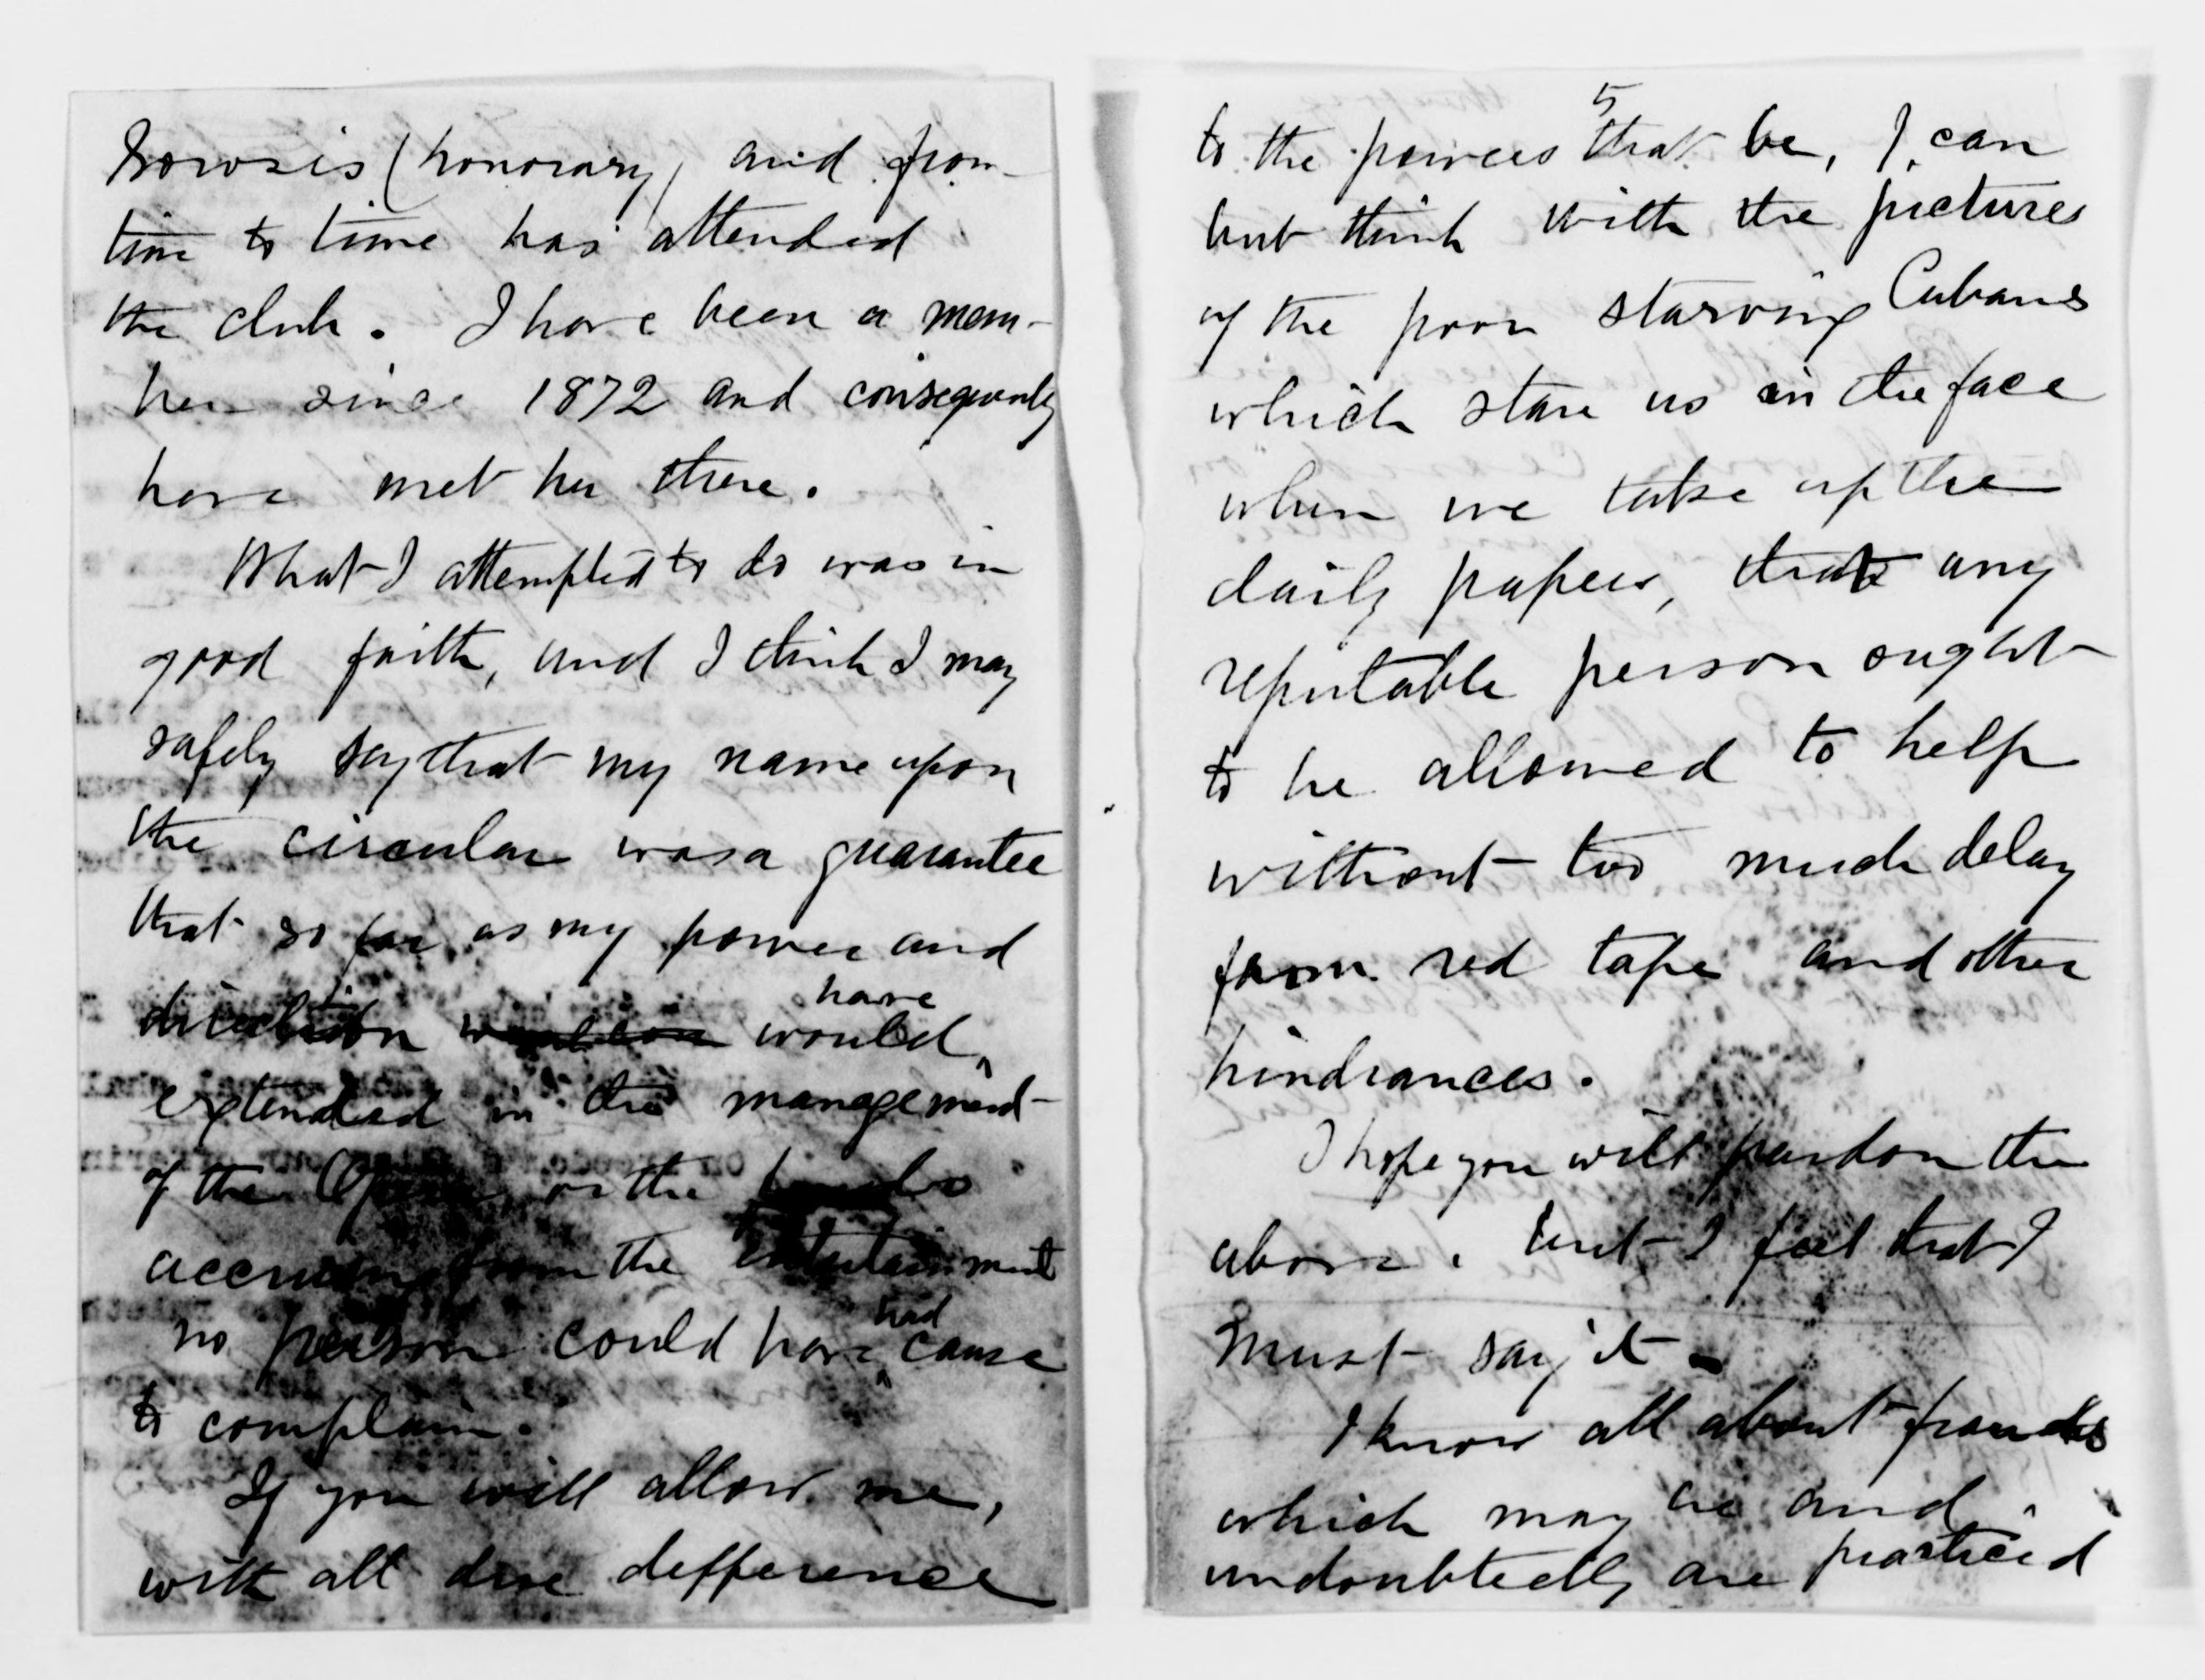 Sorosis (honorary) and from
time to time has attended
the club. I have been a mem-
ber since 1872 and consequently
have met her there.
What I attempted to do was in
good faith, and I think I may
safely say that my name upon
the circular was a guarantee
that so far as my power and
direction would have
extended in the management
of the Opera, or the funds
accruing from the entertainment
no person could have had cause
to complain.
If you will allow me,
with all due defference
5
to the powers that be, I can
but think with the pictures
of the poor starving Cubans
which stare us in the face
when we take up the
daily papers, that any
reputable person ought
to be allowed to help
without too much delay
from red tape and other
hindrances.
I hope you will pardon the
above. but I feel that I
must say it.
I know all about frauds
which may be and
undoubtedly are practiced